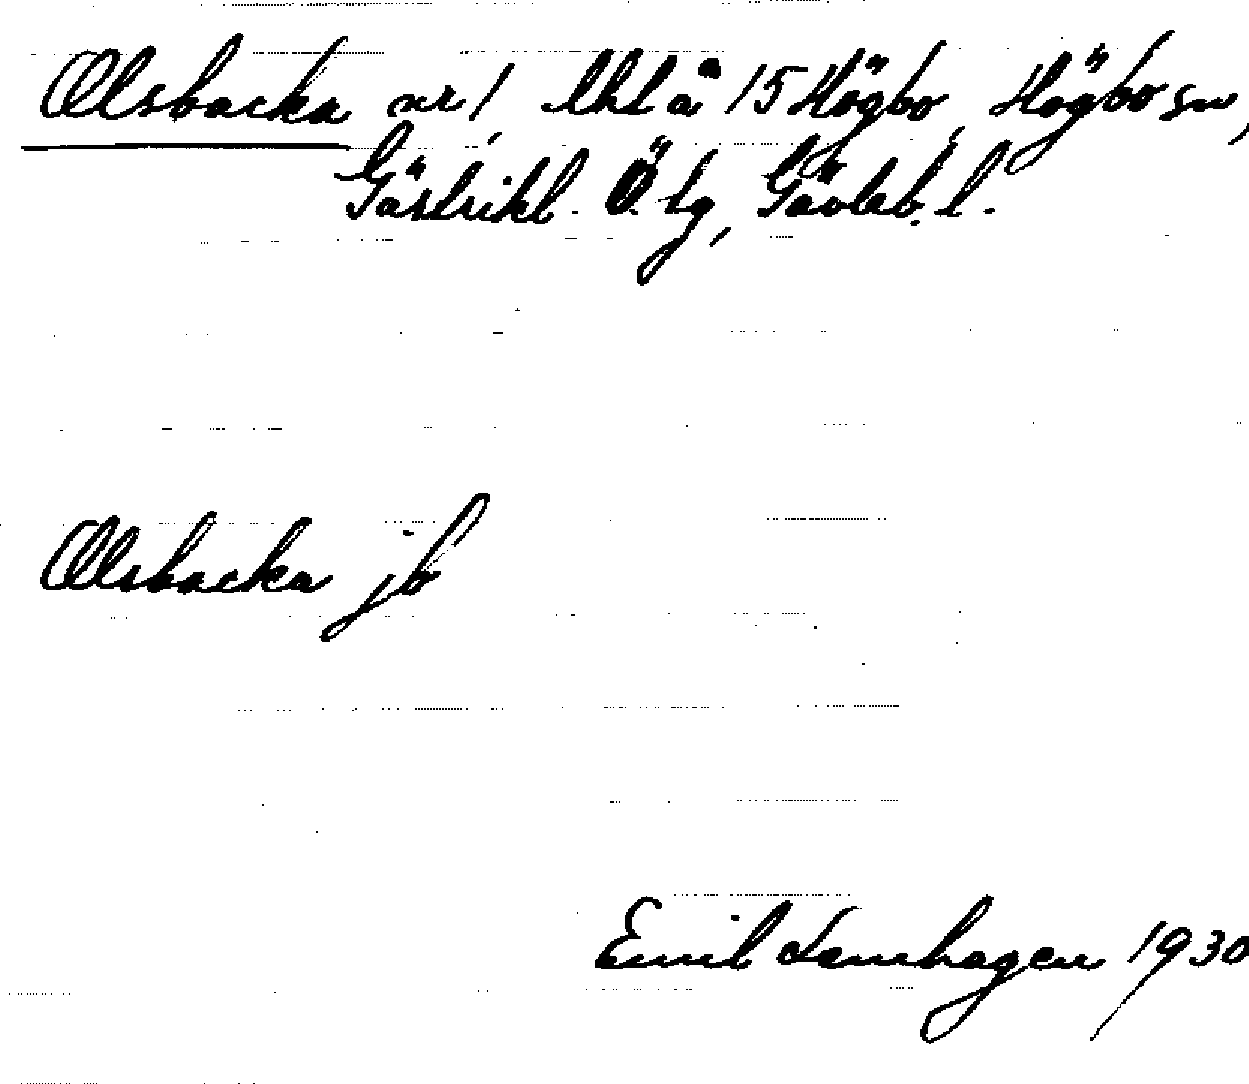 Olsbacka nr 1, lht å 15 Högbo, Högbo sn,
Gästrikl. Ö. tg, Gävleb. l.
Olsbacka jb
Emil Lenhagen 1930